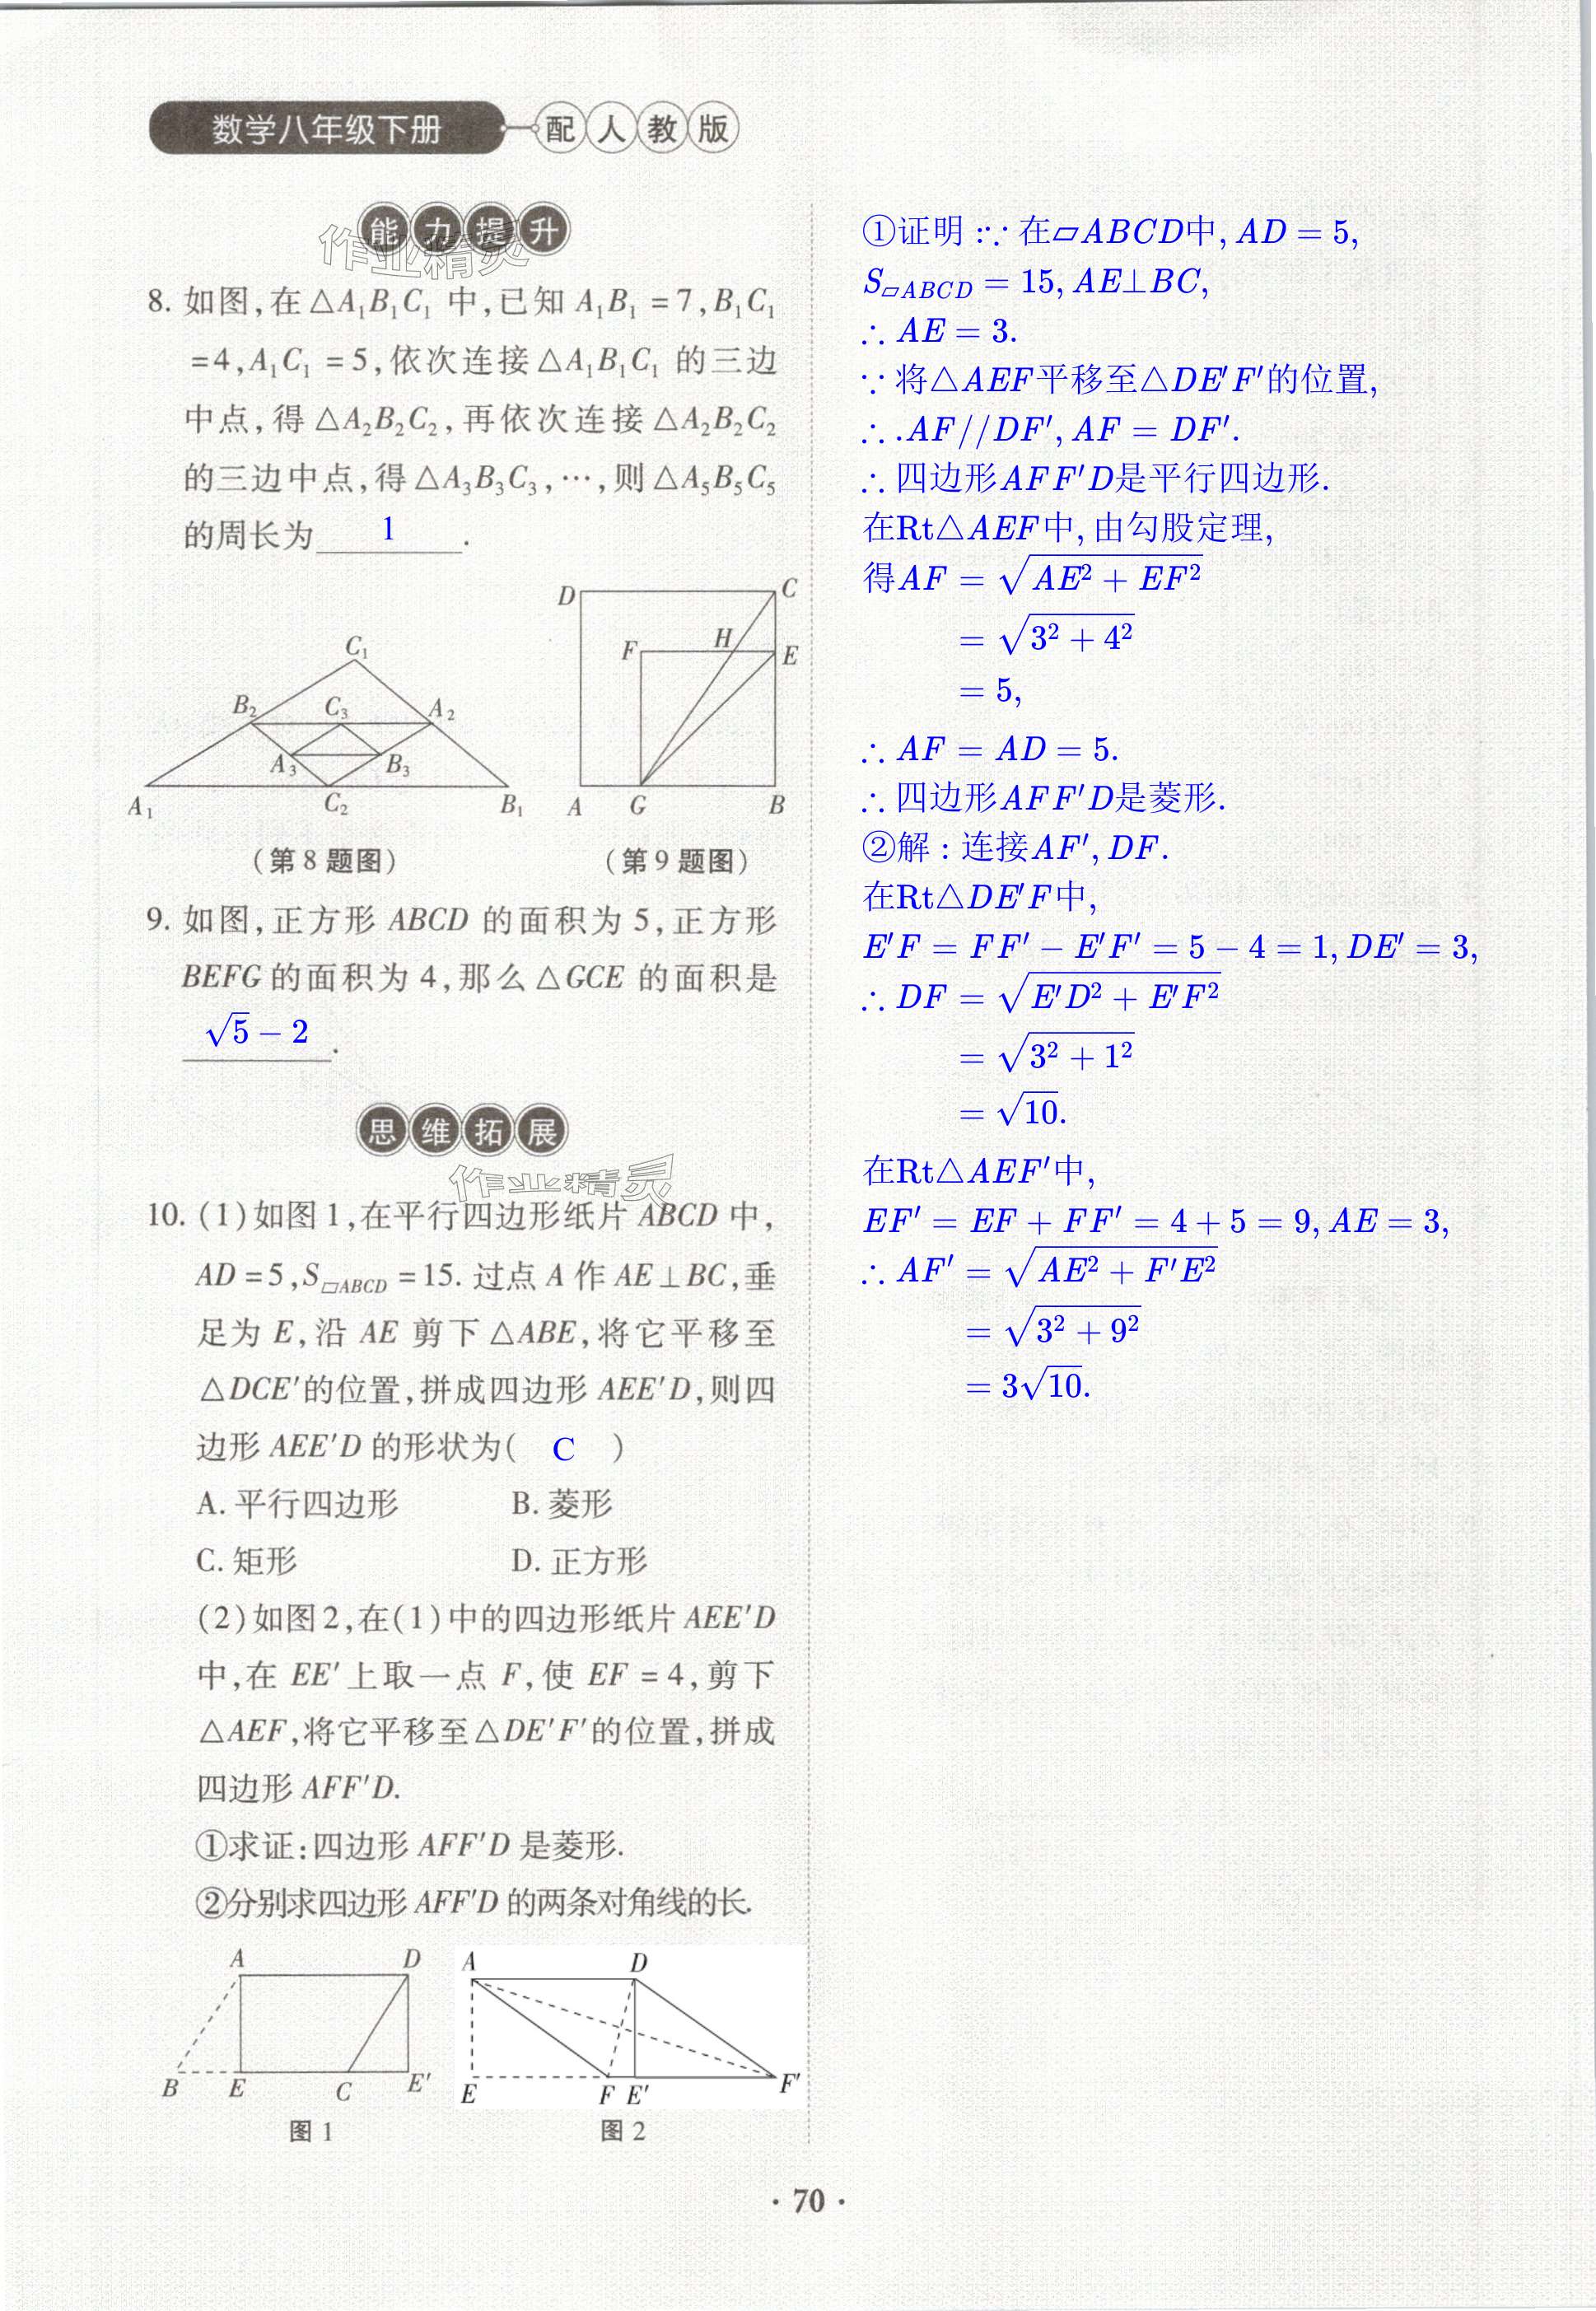 数学八年级下册 配人教版
能力提升
作业精灵
8. 如图,在△A₁B₁C₁ 中,已知 A₁B₁ =7,B₁C₁
=4,A₁C₁ =5,依次连接△A₁B₁C₁ 的三边
中点,得△A₂B₂C₂,再依次连接△A₂B₂C₂
的三边中点,得△A₃B₃C₃,…,则△A₅B₅C₅
的周长为 1 .
C₁
B₂ C₃ A₂
A₃ B₃
A₁ C₂ B₁
(第8题图)
D C
F H E
A G B
(第9题图)
9. 如图,正方形 ABCD 的面积为5,正方形
BEFG的面积为4,那么△GCE 的面积是
√5 − 2 .
思维拓展
作业精灵
10. (1)如图1,在平行四边形纸片 ABCD 中,
AD =5,S▱ABCD =15. 过点 A 作 AE⊥BC,垂
足为 E,沿 AE 剪下△ABE,将它平移至
△DCE′的位置,拼成四边形 AEE′D,则四
边形 AEE′D 的形状为( C )
A. 平行四边形 B. 菱形
C. 矩形 D. 正方形
(2)如图2,在(1)中的四边形纸片 AEE′D
中,在 EE′上取一点 F,使 EF =4,剪下
△AEF,将它平移至△DE′F′的位置,拼成
四边形 AFF′D.
①求证:四边形 AFF′D 是菱形.
②分别求四边形 AFF′D 的两条对角线的长.
A D
B E C E′
图1
A D
E F E′ F′
图2
①证明:∵ 在▱ABCD中, AD = 5,
S▱ABCD = 15, AE⊥BC,
∴ AE = 3.
∵ 将△AEF平移至△DE′F′的位置,
∴ .AF//DF′, AF = DF′.
∴ 四边形AFF′D是平行四边形.
在Rt△AEF中, 由勾股定理,
得AF = √(AE² + EF²)
= √(3² + 4²)
= 5,
∴ AF = AD = 5.
∴ 四边形AFF′D是菱形.
②解 : 连接AF′, DF.
在Rt△DE′F中,
E′F = FF′ − E′F′ = 5 − 4 = 1, DE′ = 3,
∴ DF = √(E′D² + E′F²)
= √(3² + 1²)
= √10.
在Rt△AEF′中,
EF′ = EF + FF′ = 4 + 5 = 9, AE = 3,
∴ AF′ = √(AE² + F′E²)
= √(3² + 9²)
= 3√10.
· 70 ·